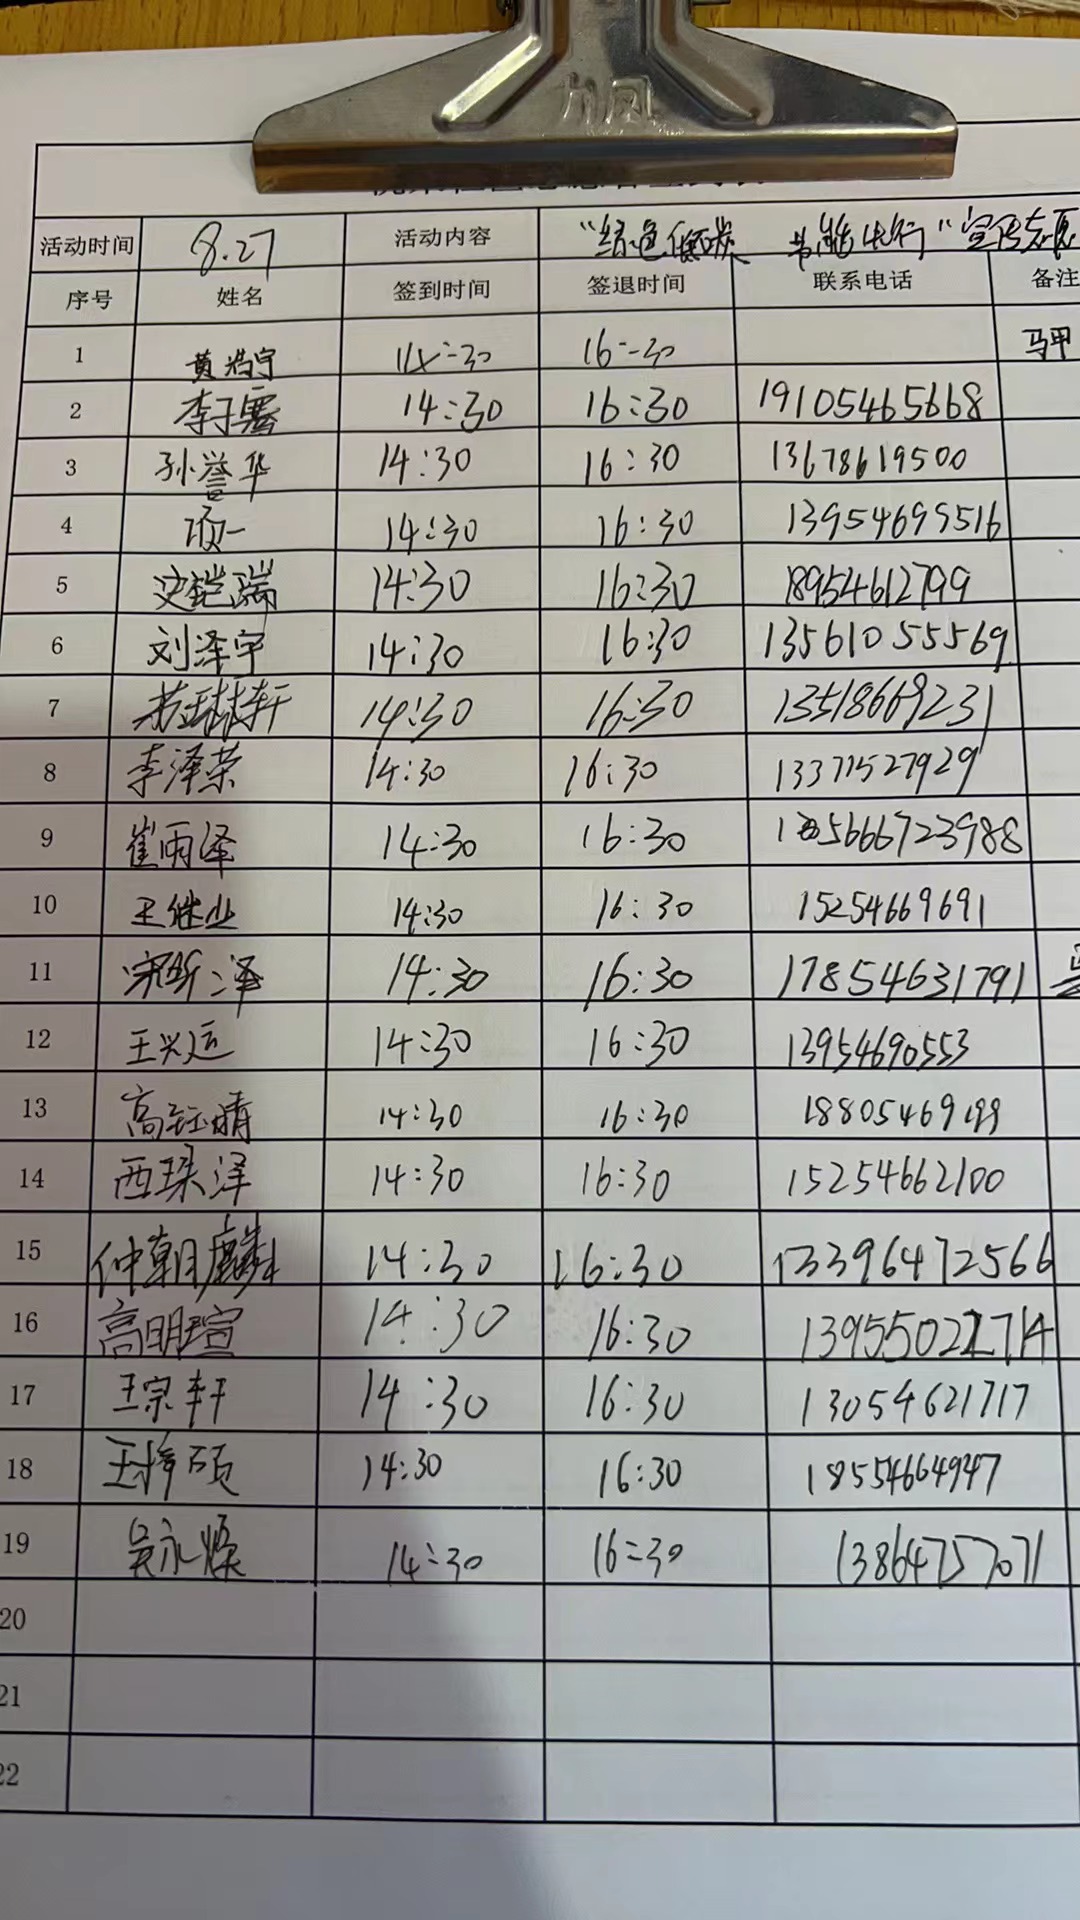 力风
活动时间 8.27 活动内容 "绿色低碳 节能先行"宣传志愿
序号 姓名 签到时间 签退时间 联系电话 备注
1 黄浩宇 14:30 16:30 马甲
2 李子骞 14:30 16:30 19105465668
3 孙誉华 14:30 16:30 13678619500
4 项一 14:30 16:30 13954699516
5 史铠瑞 14:30 16:30 18954612799
6 刘泽宇 14:30 16:30 13561055569
7 14:30 16:30 13518669231
8 李泽荣 14:30 16:30 13371527929
9 崔雨泽 14:30 16:30
10 王继业 14:30 16:30 15254669691
11 宋昕泽 14:30 16:30 17854631791
12 王兴运 14:30 16:30 13954690553
13 高钰晴 14:30 16:30 18805469199
14 西琛洋 14:30 16:30 15254662100
15 仲朝麟 14:30 16:30 13396472566
16 高明瑄 14:30 16:30
17 王宗轩 14:30 16:30 13054621717
18 王梓硕 14:30 16:30 18554664947
19 吴永燦 14:30 16:30 13864757071
20
21
22